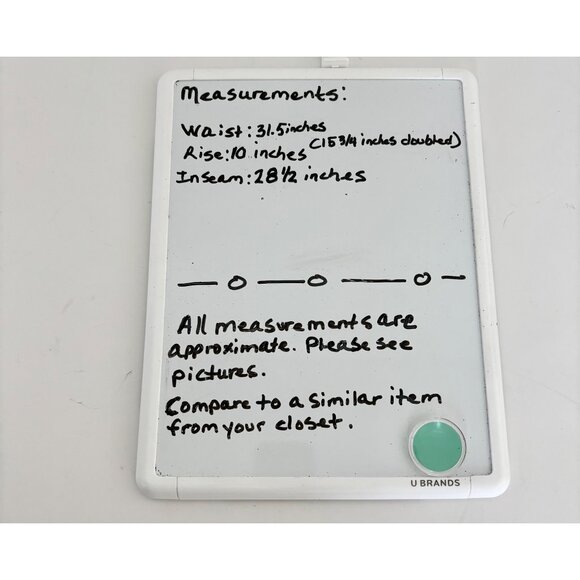 Measurements:
Waist: 31.5 inches
(15 3/4 inches doubled)
Rise: 10 inches
Inseam: 28 1/2 inches
All measurements are
approximate. Please see
pictures.
Compare to a similar item
from your closet.
U BRANDS